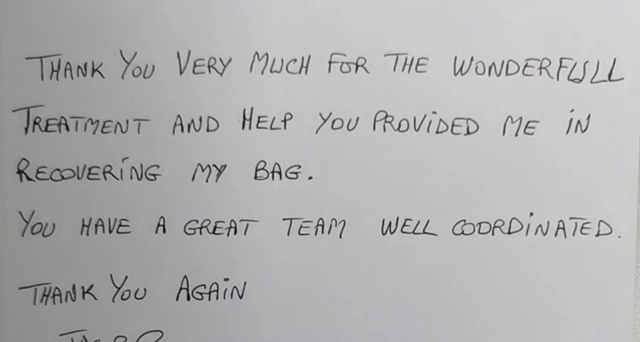 THANK YOU VERY MUCH FOR THE WONDERFULL
TREATMENT AND HELP YOU PROVIDED ME IN
RECOVERING MY BAG.
YOU HAVE A GREAT TEAM WELL COORDINATED.
THANK YOU AGAIN